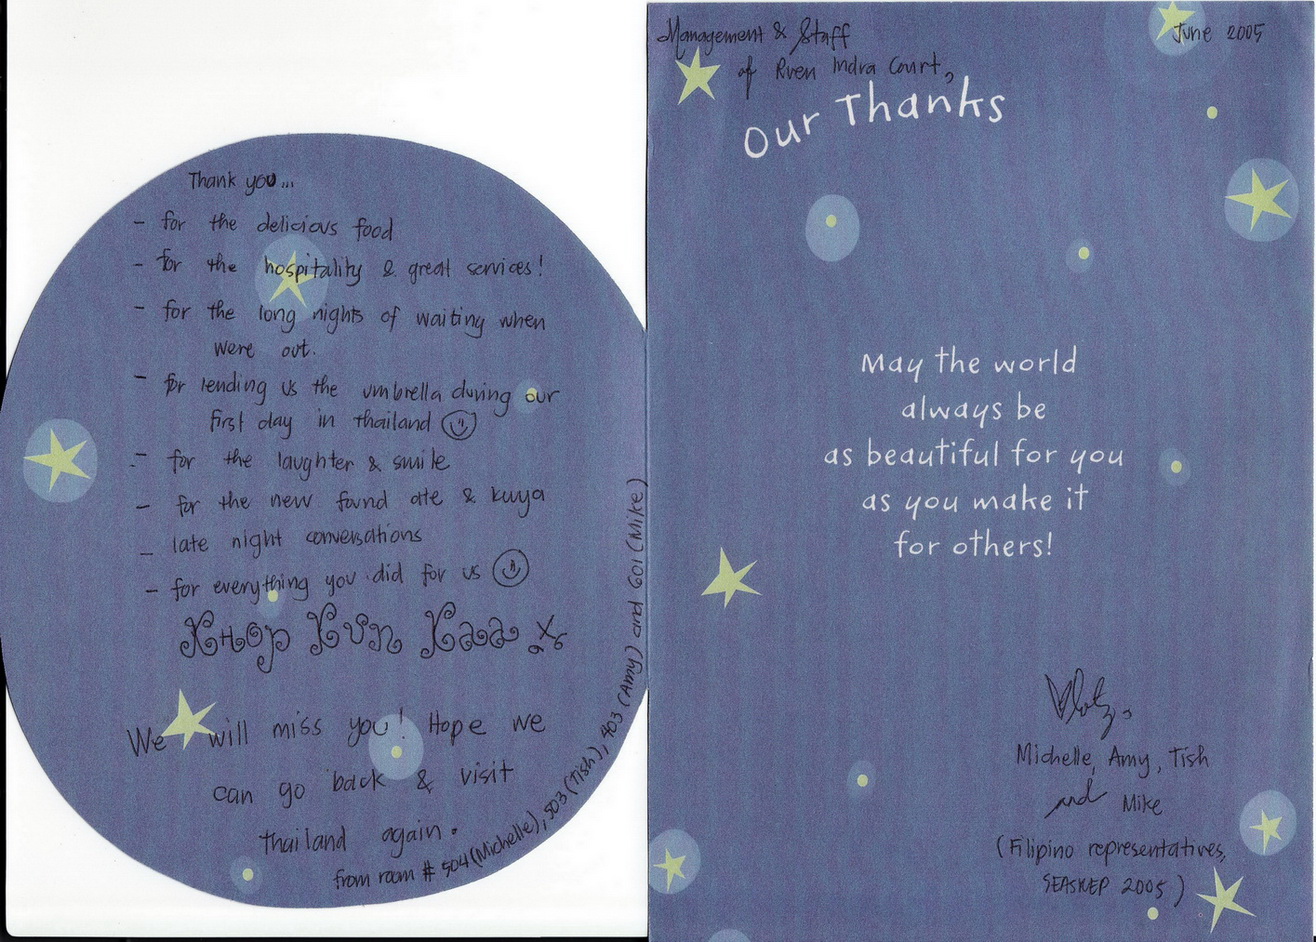 Thank you...
- for the delicious food
- for the hospitality & great services!
- for the long nights of waiting when
were out.
- for lending us the umbrella during our
first day in thailand
- for the laughter & smile
- for the new found ate & kuya
- late night conversations
- for everything you did for us
Khop Kun Kaa
We will miss you! Hope we
can go back & visit
thailand again.
from room # 504 (Michelle), 503 (Tish), 403 (Amy) and 601 (Mike)
Management & Staff
of Ruen Indra Court,
June 2005
Our Thanks
May the world
always be
as beautiful for you
as you make it
for others!
Michelle, Amy, Tish
and Mike
(Filipino representatives,
2005)